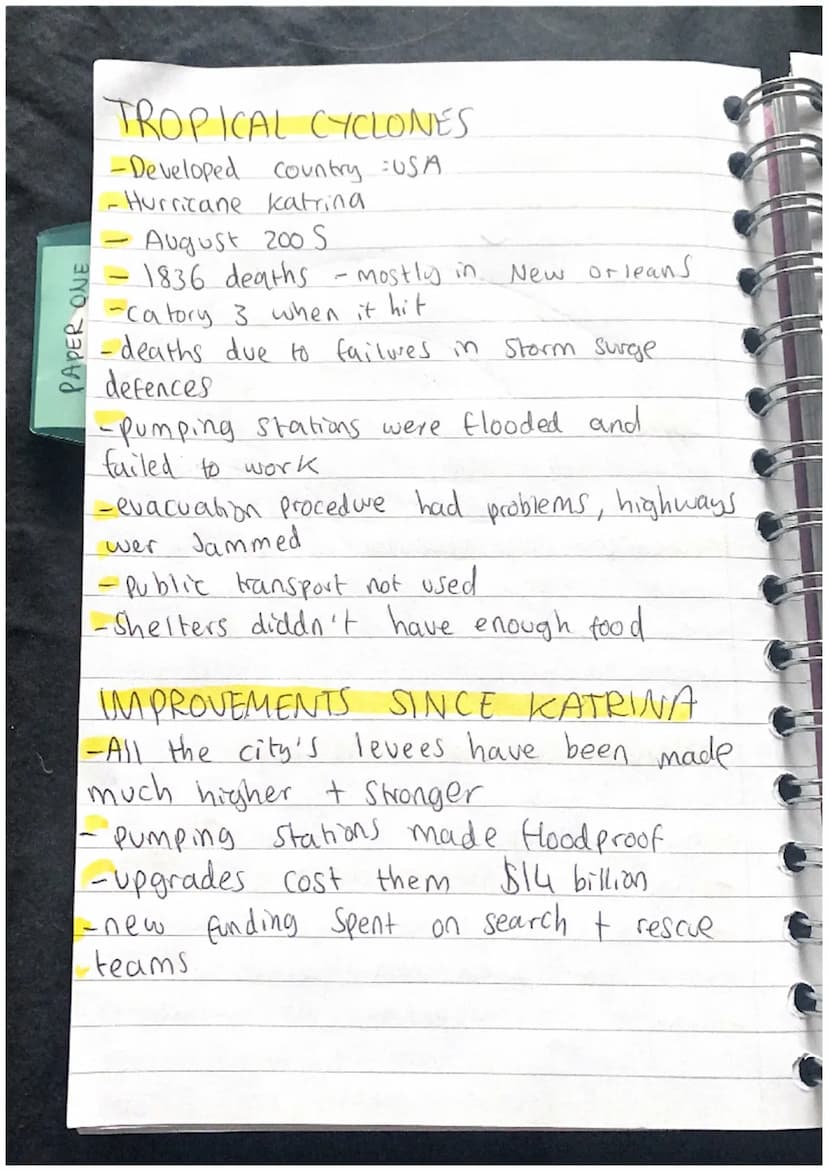 TROPICAL CYCLONES
-Developed country :USA
-Hurricane Katrina
- August 2005
- 1836 deaths - mostly in New Orleans
-catory 3 when it hit
-deaths due to failures in storm surge
defences
-pumping stations were flooded and
failed to work
-evacuation procedure had problems, highways
wer jammed
-public transport not used
-Shelters diddn't have enough food
IMPROVEMENTS SINCE KATRINA
-All the city's levees have been made
much higher + stronger
- pumping stations made floodproof
-upgrades cost them $14 billion
-new funding spent on search + rescue
teams
PAPER ONE